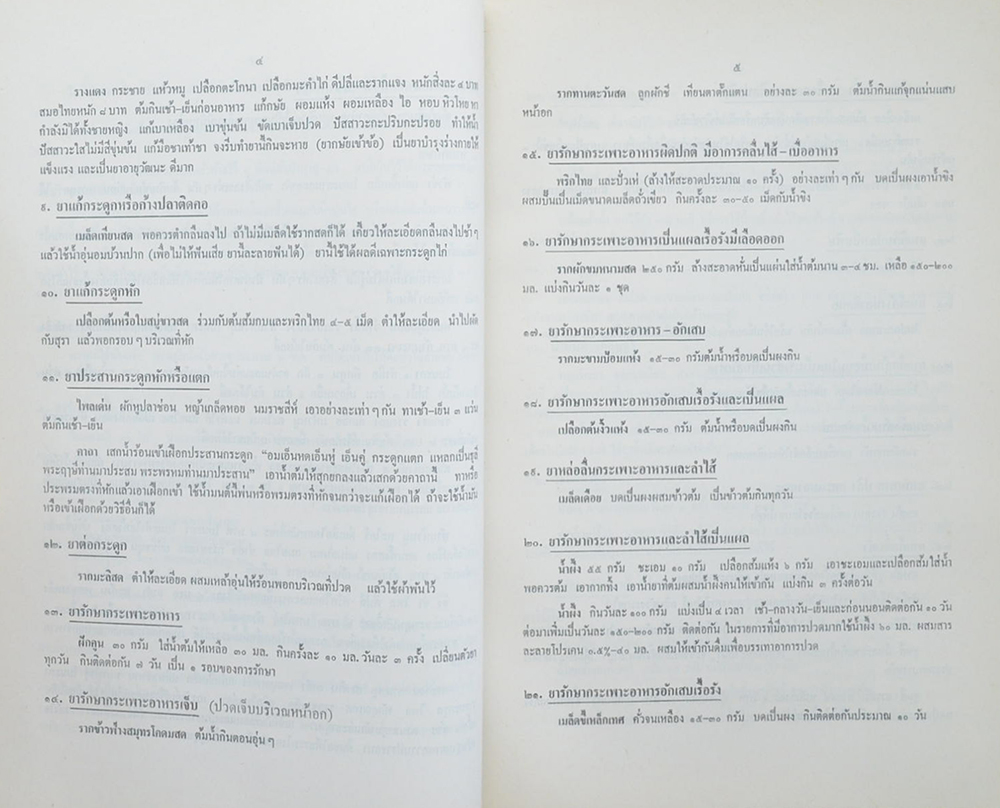 ๔
รางแดง กระชาย แห้วหมู เปลือกตะโกนา เปลือกมะคำไก่ ดีปลีและรากแจง หนักสิ่งละ ๔ บาท
สมอไทยหนัก ๘ บาท ต้มกินเช้า-เย็นก่อนอาหาร แก้กษัย ผอมแห้ง ผอมเหลือง ไอ หอบ หิวโหย หา
กำลังมิได้ทั้งชายหญิง แก้เบาเหลือง เบาขุ่นข้น ขัดเบาเจ็บปวด ปัสสาวะกะปริบกะปรอย ทำให้น้ำ
ปัสสาวะใสไม่มีสีขุ่นข้น แก้มือชาเท้าชา จงรีบทำยานี้กินจะหาย (ยากษัยเข้าข้อ) เป็นยาบำรุงร่างกายให้
แข็งแรง และเป็นยาอายุวัฒนะ ดีมาก
๙. ยาแก้กระดูกหรือก้างปลาติดคอ
เมล็ดเทียนสด พอควรตำกลืนลงไป ถ้าไม่มีเมล็ดใช้รากสดก็ได้ เคี้ยวให้ละเอียดกลืนลงไปช้าๆ
แล้วใช้น้ำอุ่นอมบ้วนปาก (เพื่อไม่ให้ฟันเสีย ยานี้ละลายฟันได้) ยานี้ใช้ได้ผลดีเฉพาะกระดูกไก่
๑๐. ยาแก้กระดูกหัก
เปลือกต้นหรือใบสบู่ขาวสด ร่วมกับต้นส้มกบและพริกไทย ๔-๕ เม็ด ตำให้ละเอียด นำไปผัด
กับสุรา แล้วพอกรอบๆ บริเวณที่หัก
๑๑. ยาประสานกระดูกหักหรือแตก
ไพลเด่น ผักหูปลาช่อน หญ้าเกล็ดหอย นมราชสีห์ เอาอย่างละเท่าๆ กัน ทาเช้า-เย็น ๓ แว่น
ต้มกินเช้า-เย็น
คาถา เสกน้ำร้อนเข้าเฝือกประสานกระดูก "อมเอ็นหดเอ็นหู่ เอ็นคู่ กระดูกแตก แหลกเป็นธุลี
พระฤๅษีท่านมาประสม พระพรหมท่านมาประสาน" เอาน้ำต้มให้สุกยกลงแล้วเสกด้วยคาถานี้ ทาหรือ
ประพรมตรงที่หักแล้วเอาเฝือกเข้า ใช้น้ำมนต์นี้พ่นหรือพรมตรงที่หักจนกว่าจะแก้เฝือกได้ ถ้าจะใช้น้ำมัน
หรือเข้าเฝือกด้วยวิธีอื่นก็ได้
๑๒. ยาต่อกระดูก
รากมะลิสด ตำให้ละเอียด ผสมเหล้าอุ่นให้ร้อนพอกบริเวณที่ปวด แล้วใช้ผ้าพันไว้
๑๓. ยารักษากระเพาะอาหาร
ฝักคูน ๓๐ กรัม ใส่น้ำต้มให้เหลือ ๓๐ มล. กินครั้งละ ๑๐ มล. วันละ ๓ ครั้ง เปลี่ยนตัวยา
ทุกวัน กินติดต่อกัน ๗ วัน เป็น ๑ รอบของการรักษา
๑๔. ยารักษากระเพาะอาหารเจ็บ (ปวดเจ็บบริเวณหน้าอก)
รากข้าวฟ่างสมุทรโคดมสด ต้มน้ำกินตอนอุ่นๆ
๕
รากทานตะวันสด ลูกผักชี เทียนตาตั๊กแตน อย่างละ ๓๐ กรัม ต้มน้ำกินแก้จุกแน่นแสบ
หน้าอก
๑๕. ยารักษากระเพาะอาหารผิดปกติ มีอาการคลื่นไส้-เบื่ออาหาร
พริกไทย และปั่วเห่ (ล้างให้สะอาดประมาณ ๑๐ ครั้ง) อย่างละเท่าๆ กัน บดเป็นผงเอาน้ำขิง
ผสมปั้นเป็นเม็ดขนาดเมล็ดถั่วเขียว กินครั้งละ ๓๐-๕๐ เม็ดกับน้ำขิง
๑๖. ยารักษากระเพาะอาหารเป็นแผลเรื้อรังมีเลือดออก
รากผักขมหนามสด ๒๕๐ กรัม ล้างสะอาดหั่นเป็นแผ่นใส่น้ำต้มนาน ๓-๔ ชม. เหลือ ๑๕๐-๒๐๐
มล. แบ่งกินวันละ ๑ ชุด
๑๗. ยารักษากระเพาะอาหาร-อักเสบ
รากมะขามป้อมแห้ง ๑๕-๓๐ กรัมต้มน้ำหรือบดเป็นผงกิน
๑๘. ยารักษากระเพาะอาหารอักเสบเรื้อรังและเป็นแผล
เปลือกต้นงิ้วแห้ง ๑๕-๓๐ กรัม ต้มน้ำหรือบดเป็นผงกิน
๑๙. ยาหล่อลื่นกระเพาะอาหารและลำไส้
เมล็ดเดือย บดเป็นผงผสมข้าวต้ม เป็นข้าวต้มกินทุกวัน
๒๐. ยารักษากระเพาะอาหารและลำไส้เป็นแผล
น้ำผึ้ง ๕๕ กรัม ชะเอม ๑๐ กรัม เปลือกส้มแห้ง ๖ กรัม เอาชะเอมและเปลือกส้มใส่น้ำ
พอควรต้ม เอากากทิ้ง เอาน้ำยาที่ต้มผสมน้ำผึ้งคนให้เข้ากัน แบ่งกิน ๓ ครั้งต่อวัน
น้ำผึ้ง กินวันละ ๑๐๐ กรัม แบ่งเป็น ๔ เวลา เช้า-กลางวัน-เย็นและก่อนนอนติดต่อกัน ๑๐ วัน
ต่อมาเพิ่มเป็นวันละ ๑๕๐-๒๐๐ กรัม ติดต่อกัน ในรายการที่มีอาการปวดมากใช้น้ำผึ้ง ๖๐ มล. ผสมสาร
ละลายโปรเคน ๐.๕%-๔๐ มล. ผสมให้เข้ากันดื่มเพื่อบรรเทาอาการปวด
๒๑. ยารักษากระเพาะอาหารอักเสบเรื้อรัง
เมล็ดขี้เหล็กเทศ คั่วจนเหลือง ๑๕-๓๐ กรัม บดเป็นผง กินติดต่อกันประมาณ ๑๐ วัน